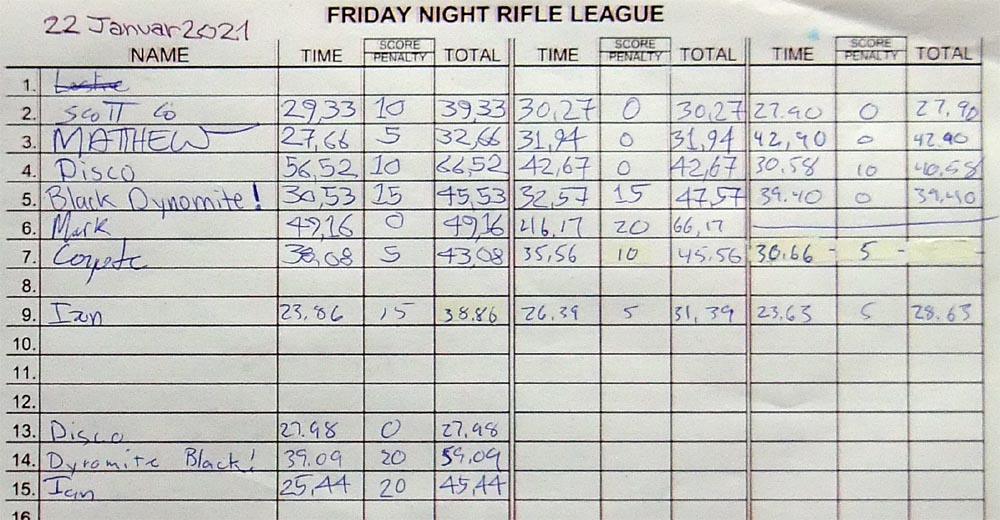 FRIDAY NIGHT RIFLE LEAGUE
22 Januar 2021
NAME TIME SCORE PENALTY TOTAL TIME SCORE PENALTY TOTAL TIME SCORE PENALTY TOTAL
1.
2. Scott G 29,33 10 39,33 30,27 0 30,27 27.90 0 27,90
3. MATTHEW 27,66 5 32,66 31,94 0 31,94 42,90 0 42.90
4. Disco 56,52 10 66,52 42,67 0 42,67 30.58 10 40.58
5. Black Dynomite! 30,53 15 45,53 32,57 15 47,57 39.40 0 39,40
6. Mark 49,16 0 49,16 46,17 20 66,17
7. Coyote 38,08 5 43,08 35,56 10 45.56 30.66 - 5 -
8.
9. Ian 23,86 15 38.86 26.39 5 31,39 23.63 5 28.63
10.
11.
12.
13. Disco 27.98 0 27,98
14. Dynomite Black! 39.09 20 59,09
15. Ian 25,44 20 45,44
16